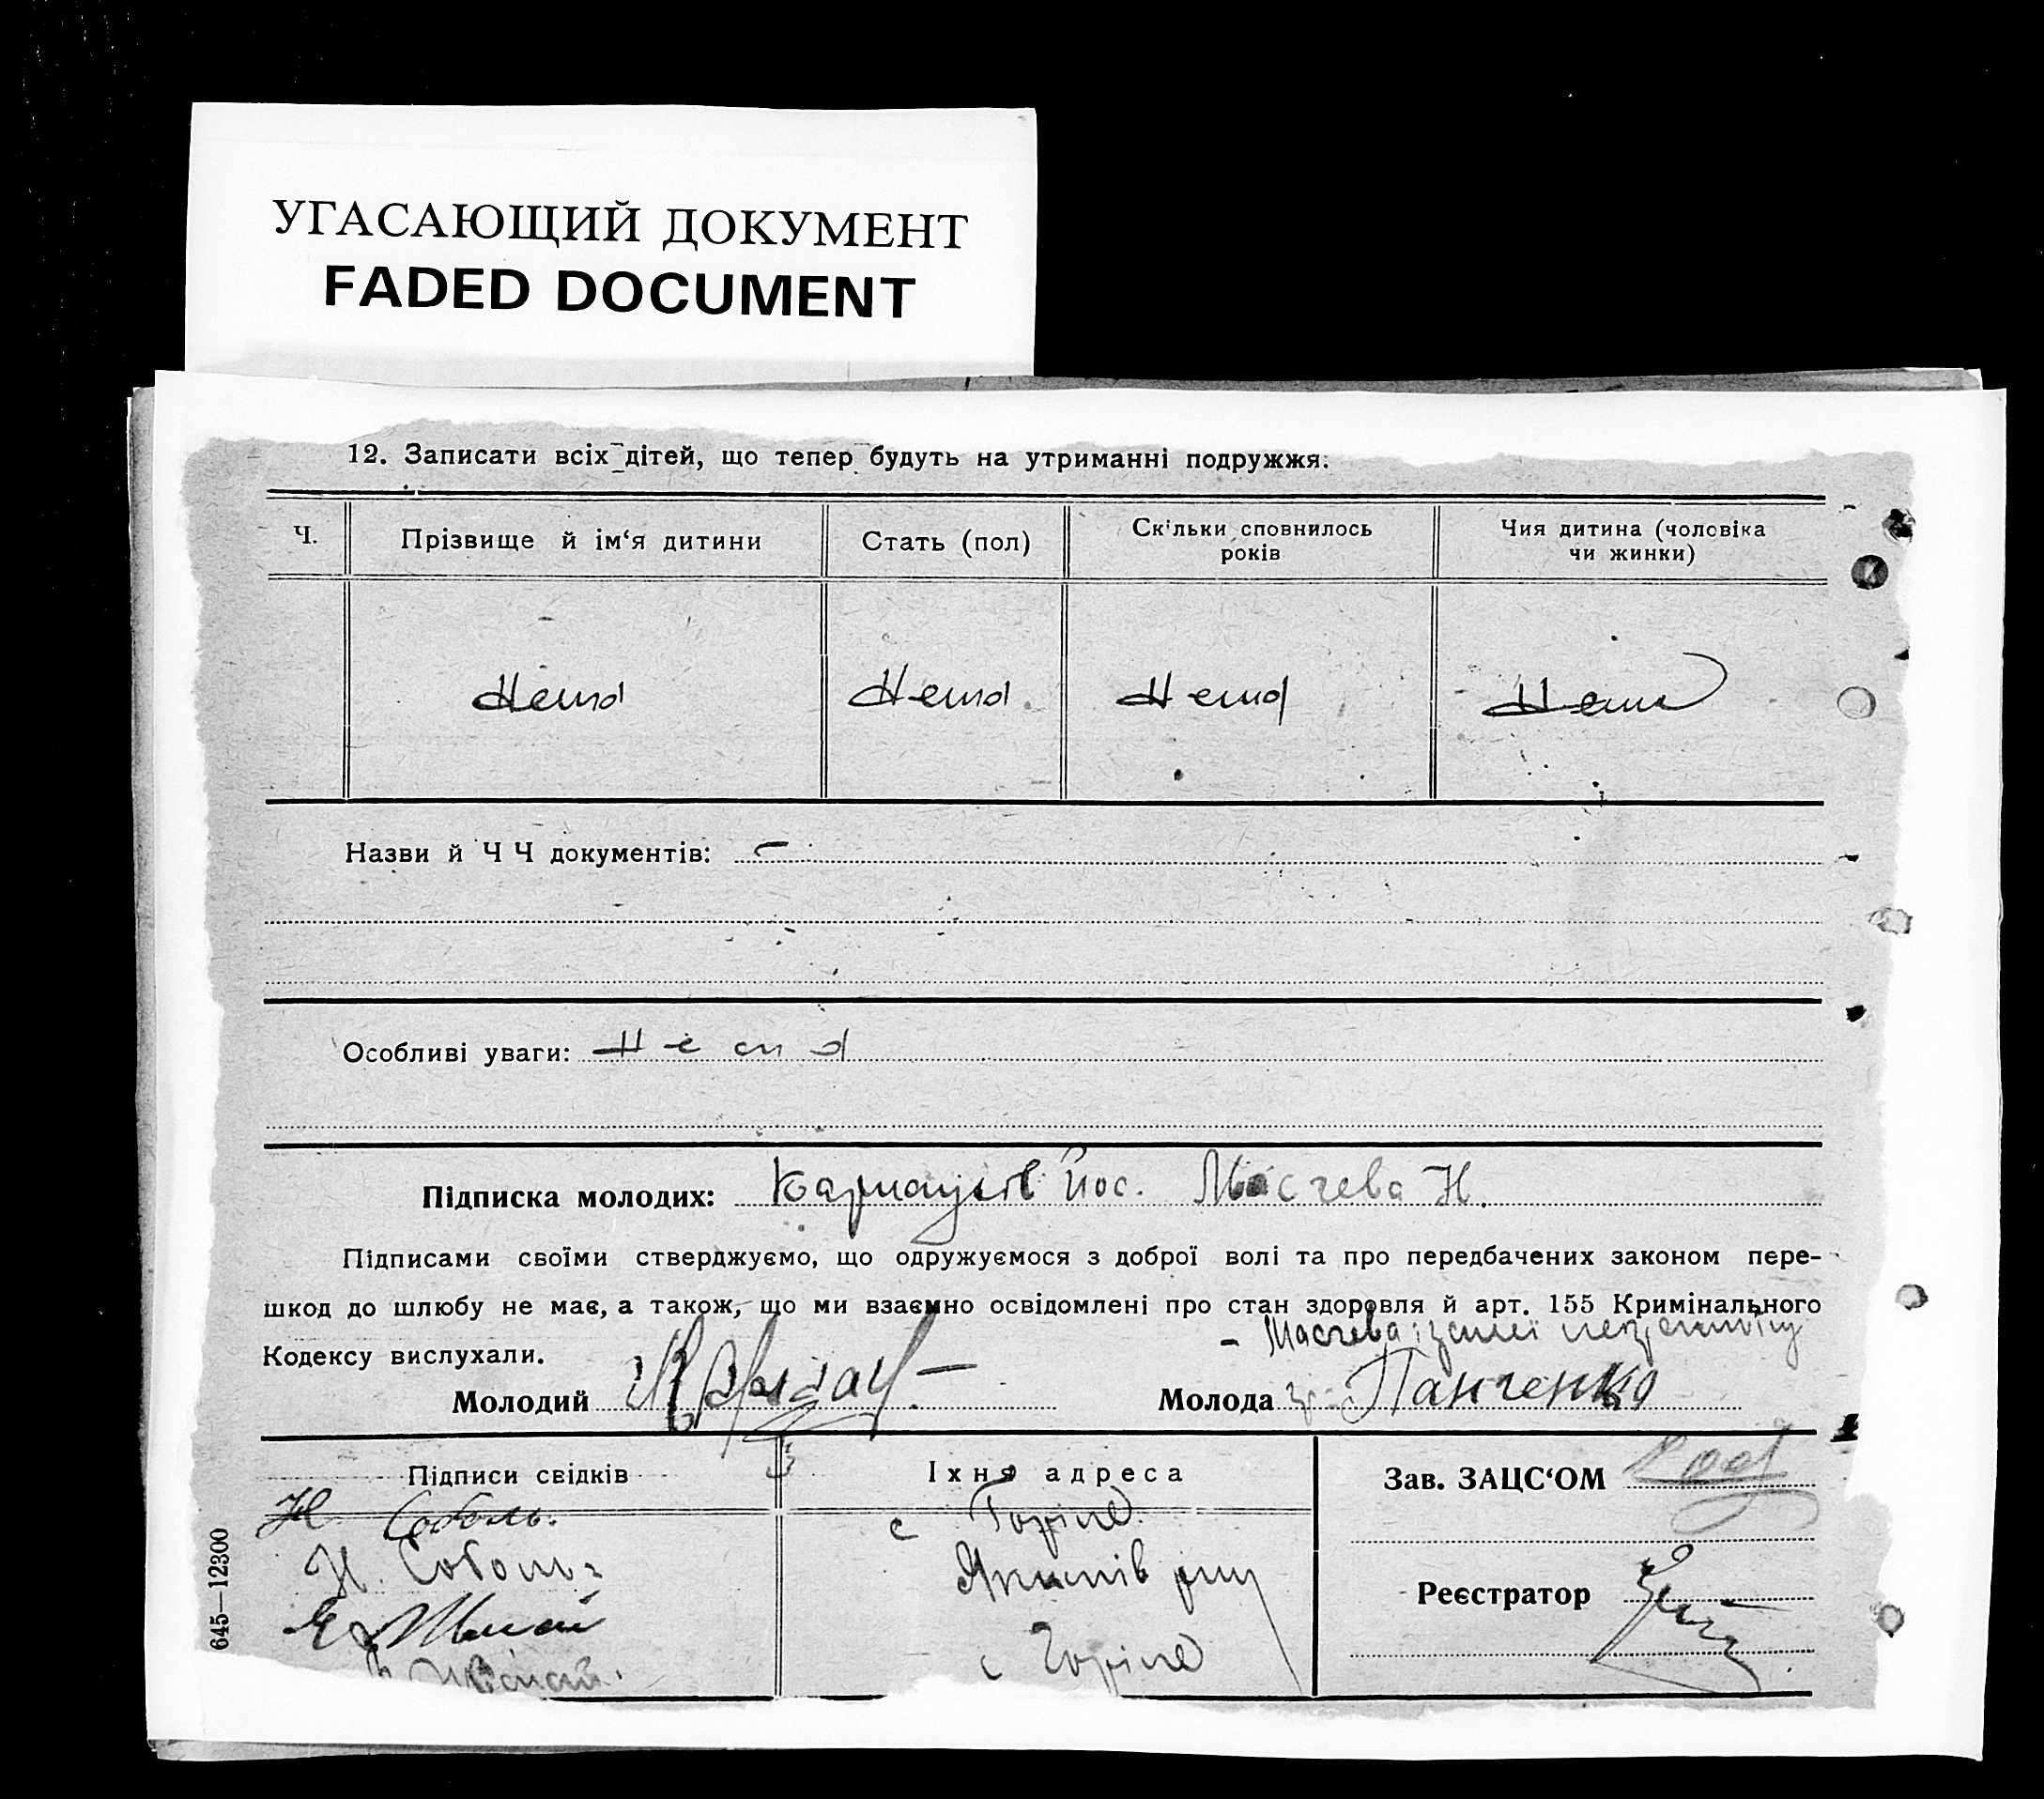 УГАСАЮЩИЙ ДОКУМЕНТ
FADED DOCUMENT
12. Записати всіх дітей, що тепер будуть на утриманні подружжя:
Ч. Прізвище й ім‘я дитини Стать (пол) Скільки сповнилось років Чия дитина (чоловіка чи жинки)
Нема Нема Нема Нема
Назви й Ч Ч документів: –
Особливі уваги: Нема
Підписка молодих: Йос. Масчева Н.
Підписами своїми стверджуємо, що одружуємося з доброї волі та про передбачених законом пере-
шкод до шлюбу не має, а також, що ми взаємно освідомлені про стан здоровля й арт. 155 Кримінального
– Масчева
Кодексу вислухали.
Молодий Молода Панченко
Підписи свідків Їхня адреса Зав. ЗАЦС‘ОМ
Н. Соболь. с Горіле
Н. Соболь
Якимів Реєстратор
с Горіле
645—12300